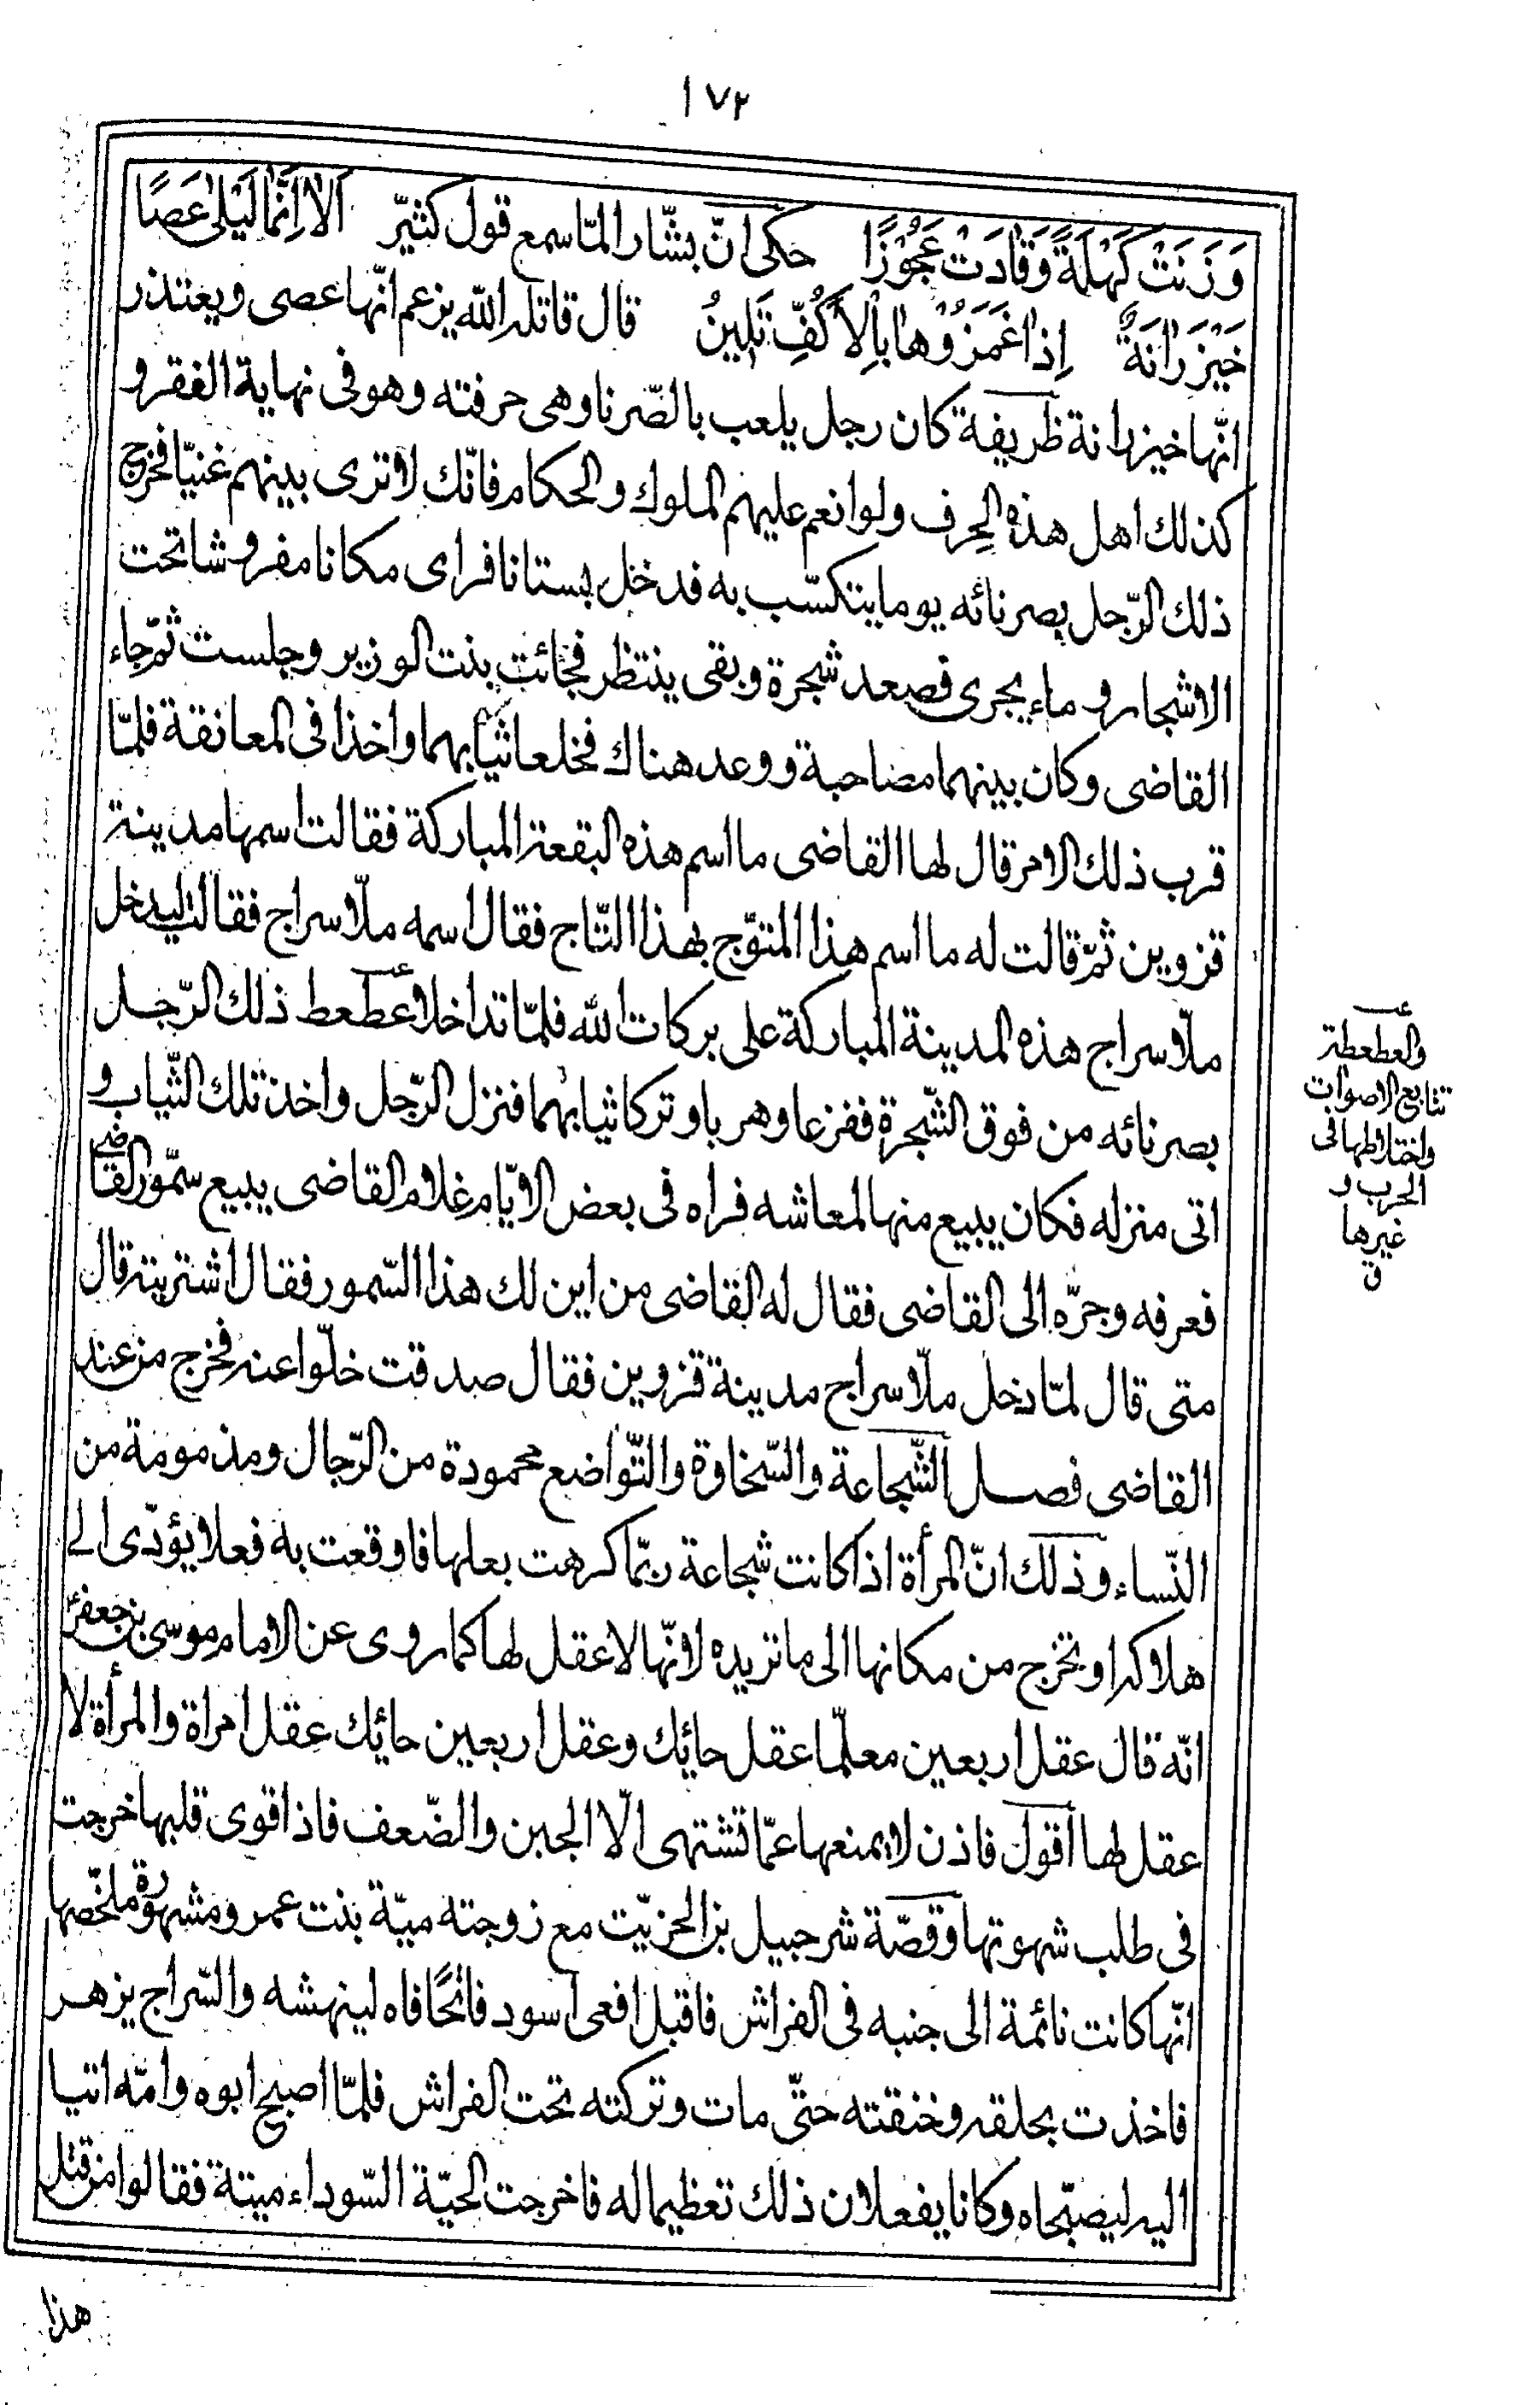 ١٧٢
وَزَنَتْ كَهْلَةً وَقَادَتْ عَجُوْزًا حكى انّ بشّار المّا سمع قول كثيّر اَلَا اِنَّمَا لَيْلٰى عَصَا
خَيْزَرَانَةٌ اِذَا غَمَزُوْهَا بِالْاَكُفِّ تَلِينُ قال قاتله الله يزعم انّها عصى ويعتذر
انّها خيزرانة ظريفة كان رجل يلعب بالصّرنا وهى حرفته وهو فى نهاية الفقر و
كذلك اهل هذه الحِرف ولو انعم عليهم الملوك والحكام فانّك لا ترى بينهم غنيّا فخرج
ذلك الرّجل بصرنائه يوما يتكسّب به فدخل بستانا فراى مكانا مفروشا تحت
الاشجار و ماء يجرى فصعد شجرة وبقى ينتظر فجائت بنت الوزير وجلست ثمّ جاء
القاضى وكان بينهما مصاحبة ووعد هناك فخلعا ثيابهما واخذا فى المعانقة فلمّا
قرب ذلك الامر قال لها القاضى ما اسم هذه البقعة المباركة فقالت اسمها مدينة
قزوين ثمّ قالت له ما اسم هذا المتوّج بهذا التّاج فقال اسمه ملّا سراج فقالت ليدخل
ملّا سراج هذه المدينة المباركة على بركات الله فلمّا تداخلا عطعط ذلك الرّجل
بصرنائه من فوق الشّجرة ففزعا وهربا وتركا ثيابهما فنزل الرّجل واخذ تلك الثّياب و
اتى منزله فكان يبيع منها لمعاشه فراه فى بعض الايّام غلام القاضى يبيع سمّور القاضى
فعرفه وجرّه الى القاضى فقال له القاضى من اين لك هذا السّمور فقال اشتريته قال
متى قال لمّا دخل ملّا سراج مدينة قزوين فقال صدقت خلّوا عنه فخرج من عند
القاضى فصل الشّجاعة والسّخاوة والتّواضع محمودة من الرّجال ومذمومة من
النّساء وذلك انّ المرأة اذا كانت شجاعة ربّما كرهت بعلها فاوقعت به فعلا يؤدّى الى
هلاكه او تخرج من مكانها الى ما تريده لانّها لا عقل لها كما روى عن الامام موسى بن جعفر
انّه قال عقل اربعين معلّما عقل حائك وعقل اربعين حائك عقل امراة والمرأة لا
عقل لها أقول فاذن لا يمنعها عمّا تشتهى الّا الجبن والضّعف فاذا قوى قلبها خرجت
فى طلب شهوتها وقصّة شرجبيل بن الحزيّت مع زوجته ميّة بنت عمرو مشهورة ملخّصها
انّها كانت نائمة الى جنبه فى الفراش فاقبل افعى اسود فاتحًا فاه لينهشه والسّراج يزهر
فاخذت بحلقه وخنقته حتّى مات وتركته تحت الفراش فلمّا اصبح ابوه وامّه اتيا
اليه ليصبّحاه وكانا يفعلان ذلك تعظيما له فاخرجت الحيّة السّوداء ميتة فقالوا من قتل
هذا
والعطعطة
تتابع الاصوات
واختلاطها فى
الحرب و
غيرها
ق